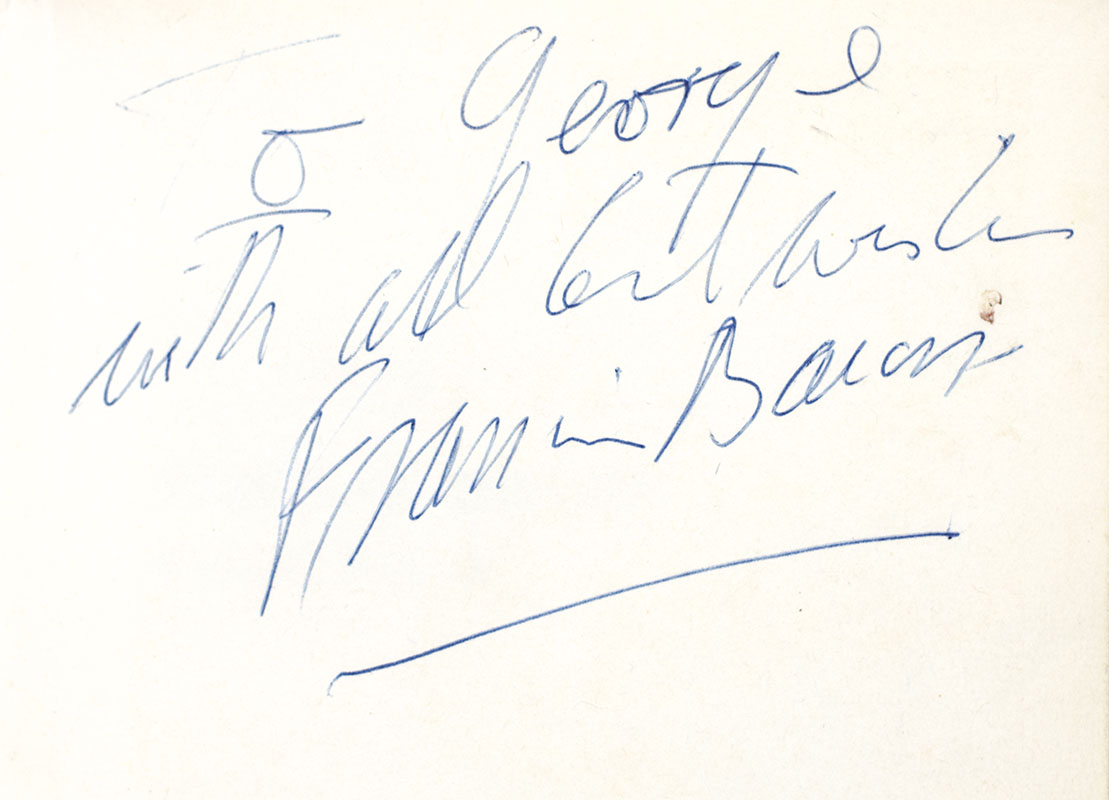 To George
with all best wishes
Francis Bacon